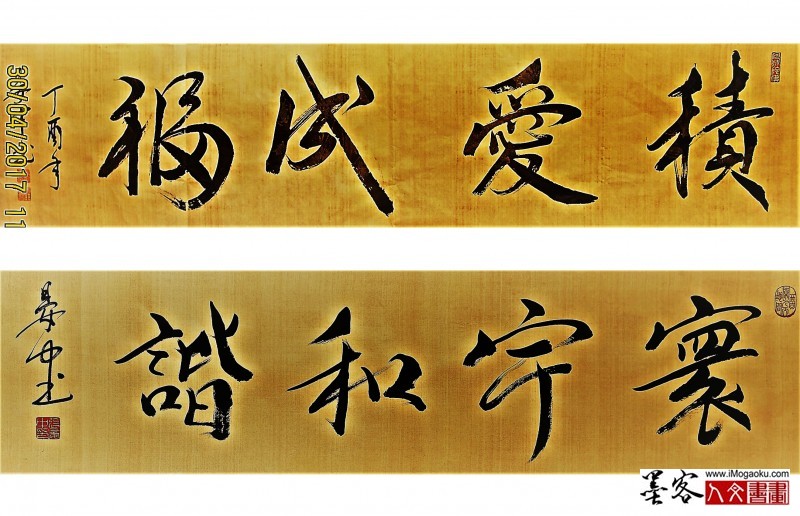 積愛成福
丁酉年
30/04/2017 11
寰宇和諧
www.iMogaoku.com
墨客人文書畫